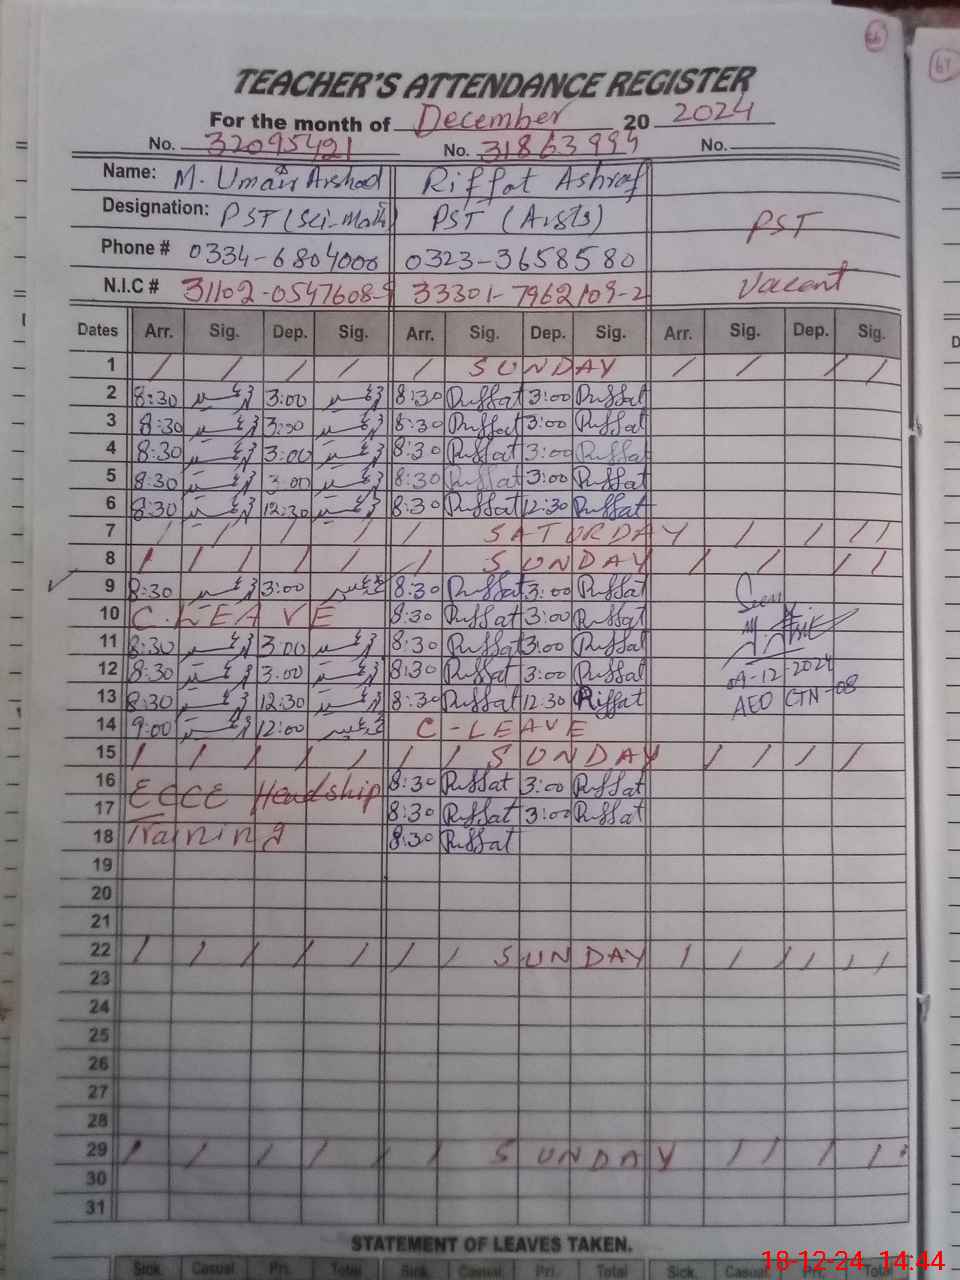 66
67
TEACHER'S ATTENDANCE REGISTER
For the month of December 20 2024
No. 32095421 No. 31863999 No.
Name: M. Umair Arshad Riffat Ashraf
Designation: PST (Sci-Math) PST (Arsts) PST
Phone # 0334-6804000 0323-3658580
N.I.C # 31102-0547608-9 33301-7962109-2 Vacent
Dates Arr. Sig. Dep. Sig. Arr. Sig. Dep. Sig. Arr. Sig. Dep. Sig.
1 / / / / / SUNDAY / / / /
2 8:30 3:00 8:30 Riffat 3:00 Riffat
3 8:30 3:00 8:30 Riffat 3:00 Riffat
4 8:30 3:00 8:30 Riffat 3:00 Riffat
5 8:30 3:00 8:30 Riffat 3:00 Riffat
6 8:30 12:30 8:30 Riffat 12:30 Riffat
7 / / / / / / SATURDAY / / / /
8 / / / / / / SUNDAY / / / /
9 8:30 3:00 8:30 Riffat 3:00 Riffat Seen
10 C.LEAVE 8:30 Riffat 3:00 Riffat
11 8:30 3:00 8:30 Riffat 3:00 Riffat
12 8:30 3:00 8:30 Riffat 3:00 Riffat 09-12-2024
13 8:30 12:30 8:30 Riffat 12:30 Riffat AEO CTN-08
14 9:00 12:00 C-LEAVE
15 / / / / / / / SUNDAY / / / /
16 ECCE Headship 8:30 Riffat 3:00 Riffat
17 8:30 Riffat 3:00 Riffat
18 Training 8:30 Riffat
19
20
21
22 / / / / / / / SUNDAY / / / / /
23
24
25
26
27
28
29 / / / / / / SUNDAY / / / /
30
31
STATEMENT OF LEAVES TAKEN.
Sick. Casual. Pri. Total Sick. Casual. Pri. Total Sick. Casual. Pri. Total
18-12-24, 14:44